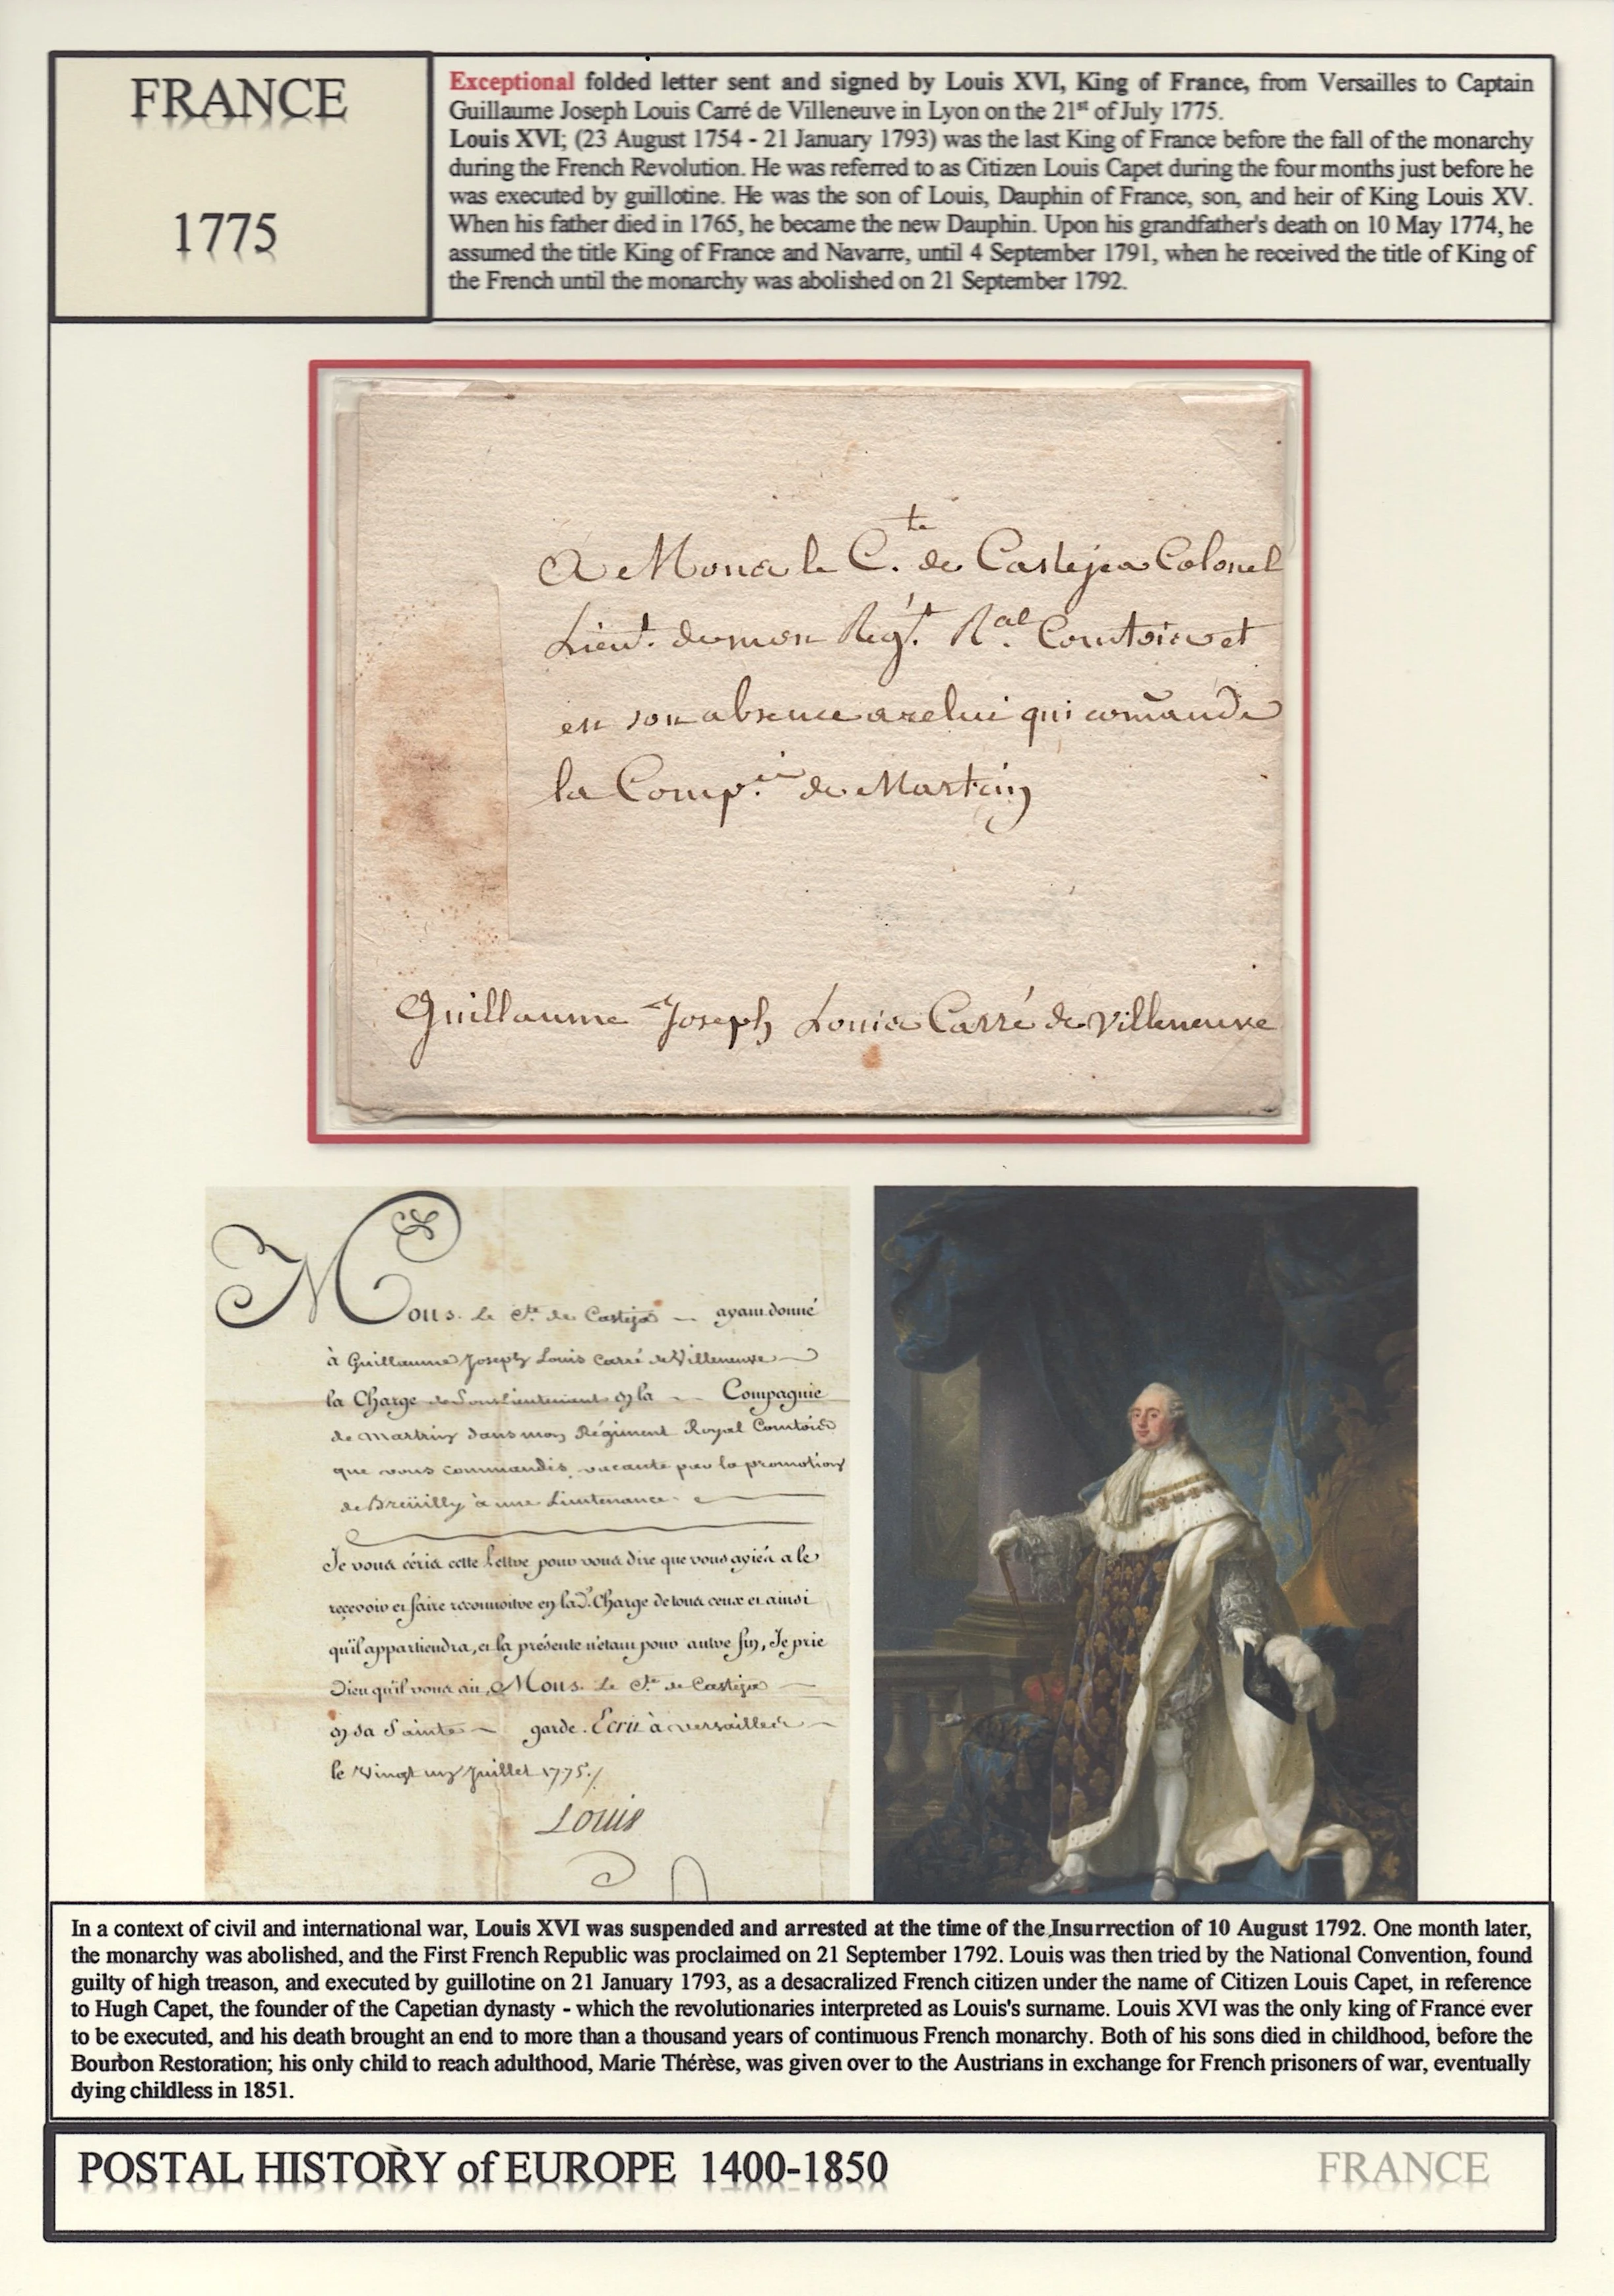 FRANCE
1775
Exceptional folded letter sent and signed by Louis XVI, King of France, from Versailles to Captain
Guillaume Joseph Louis Carré de Villeneuve in Lyon on the 21st of July 1775.
Louis XVI; (23 August 1754 - 21 January 1793) was the last King of France before the fall of the monarchy
during the French Revolution. He was referred to as Citizen Louis Capet during the four months just before he
was executed by guillotine. He was the son of Louis, Dauphin of France, son, and heir of King Louis XV.
When his father died in 1765, he became the new Dauphin. Upon his grandfather's death on 10 May 1774, he
assumed the title King of France and Navarre, until 4 September 1791, when he received the title of King of
the French until the monarchy was abolished on 21 September 1792.
A Mons le C.te de Casteja Colonel
Lieut. de mon Régt. R.al Comtois et
en son absence a celui qui com̃ande
la Comp.ie de Martrin
Guillaume Joseph Louis Carré de Villeneuve
Mons. Le Cte. de Casteja ayant donné
à Guillaume Joseph Louis Carré de Villeneuve
la Charge de Sous Lieutenant en la Compagnie
de Martrin dans mon Régiment Royal Comtois
que vous commandés, vacante par la promotion
de Breüilly à une Lieutenance.
Je vous écris cette Lettre pour vous dire que vous ayiés a le
recevoir et faire reconnoitre en lad. Charge de tous ceux et ainsi
qu'il appartiendra, et la présente n'étant pour autre fin, Je prie
Dieu qu'il vous ait, Mons. Le Cte. de Casteja
en sa Sainte garde. Ecrit à Versailles
le Vingt un Juillet 1775./
Louis
In a context of civil and international war, Louis XVI was suspended and arrested at the time of the Insurrection of 10 August 1792. One month later,
the monarchy was abolished, and the First French Republic was proclaimed on 21 September 1792. Louis was then tried by the National Convention, found
guilty of high treason, and executed by guillotine on 21 January 1793, as a desacralized French citizen under the name of Citizen Louis Capet, in reference
to Hugh Capet, the founder of the Capetian dynasty - which the revolutionaries interpreted as Louis's surname. Louis XVI was the only king of France ever
to be executed, and his death brought an end to more than a thousand years of continuous French monarchy. Both of his sons died in childhood, before the
Bourbon Restoration; his only child to reach adulthood, Marie Thérèse, was given over to the Austrians in exchange for French prisoners of war, eventually
dying childless in 1851.
POSTAL HISTORY of EUROPE 1400-1850
FRANCE